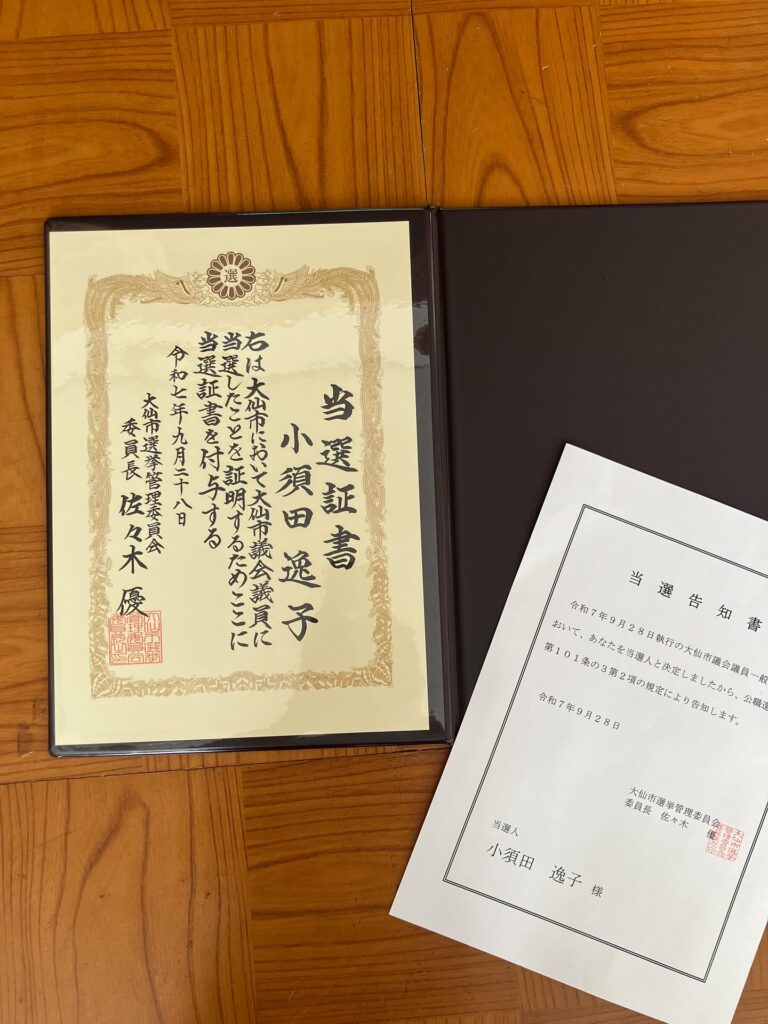 選
当選証書
小須田 逸子
右は大仙市において大仙市議会議員に
当選したことを証明するためここに
当選証書を付与する
令和七年九月二十八日
大仙市選挙管理委員会
委員長 佐々木 優
当選告知書
令和7年9月28日執行の大仙市議会議員一般
おいて、あなたを当選人と決定しましたから、公職選
第101条の3第2項の規定により告知します。
令和7年9月28日
大仙市選挙管理委員会
委員長 佐々木 優
当選人
小須田 逸子 様